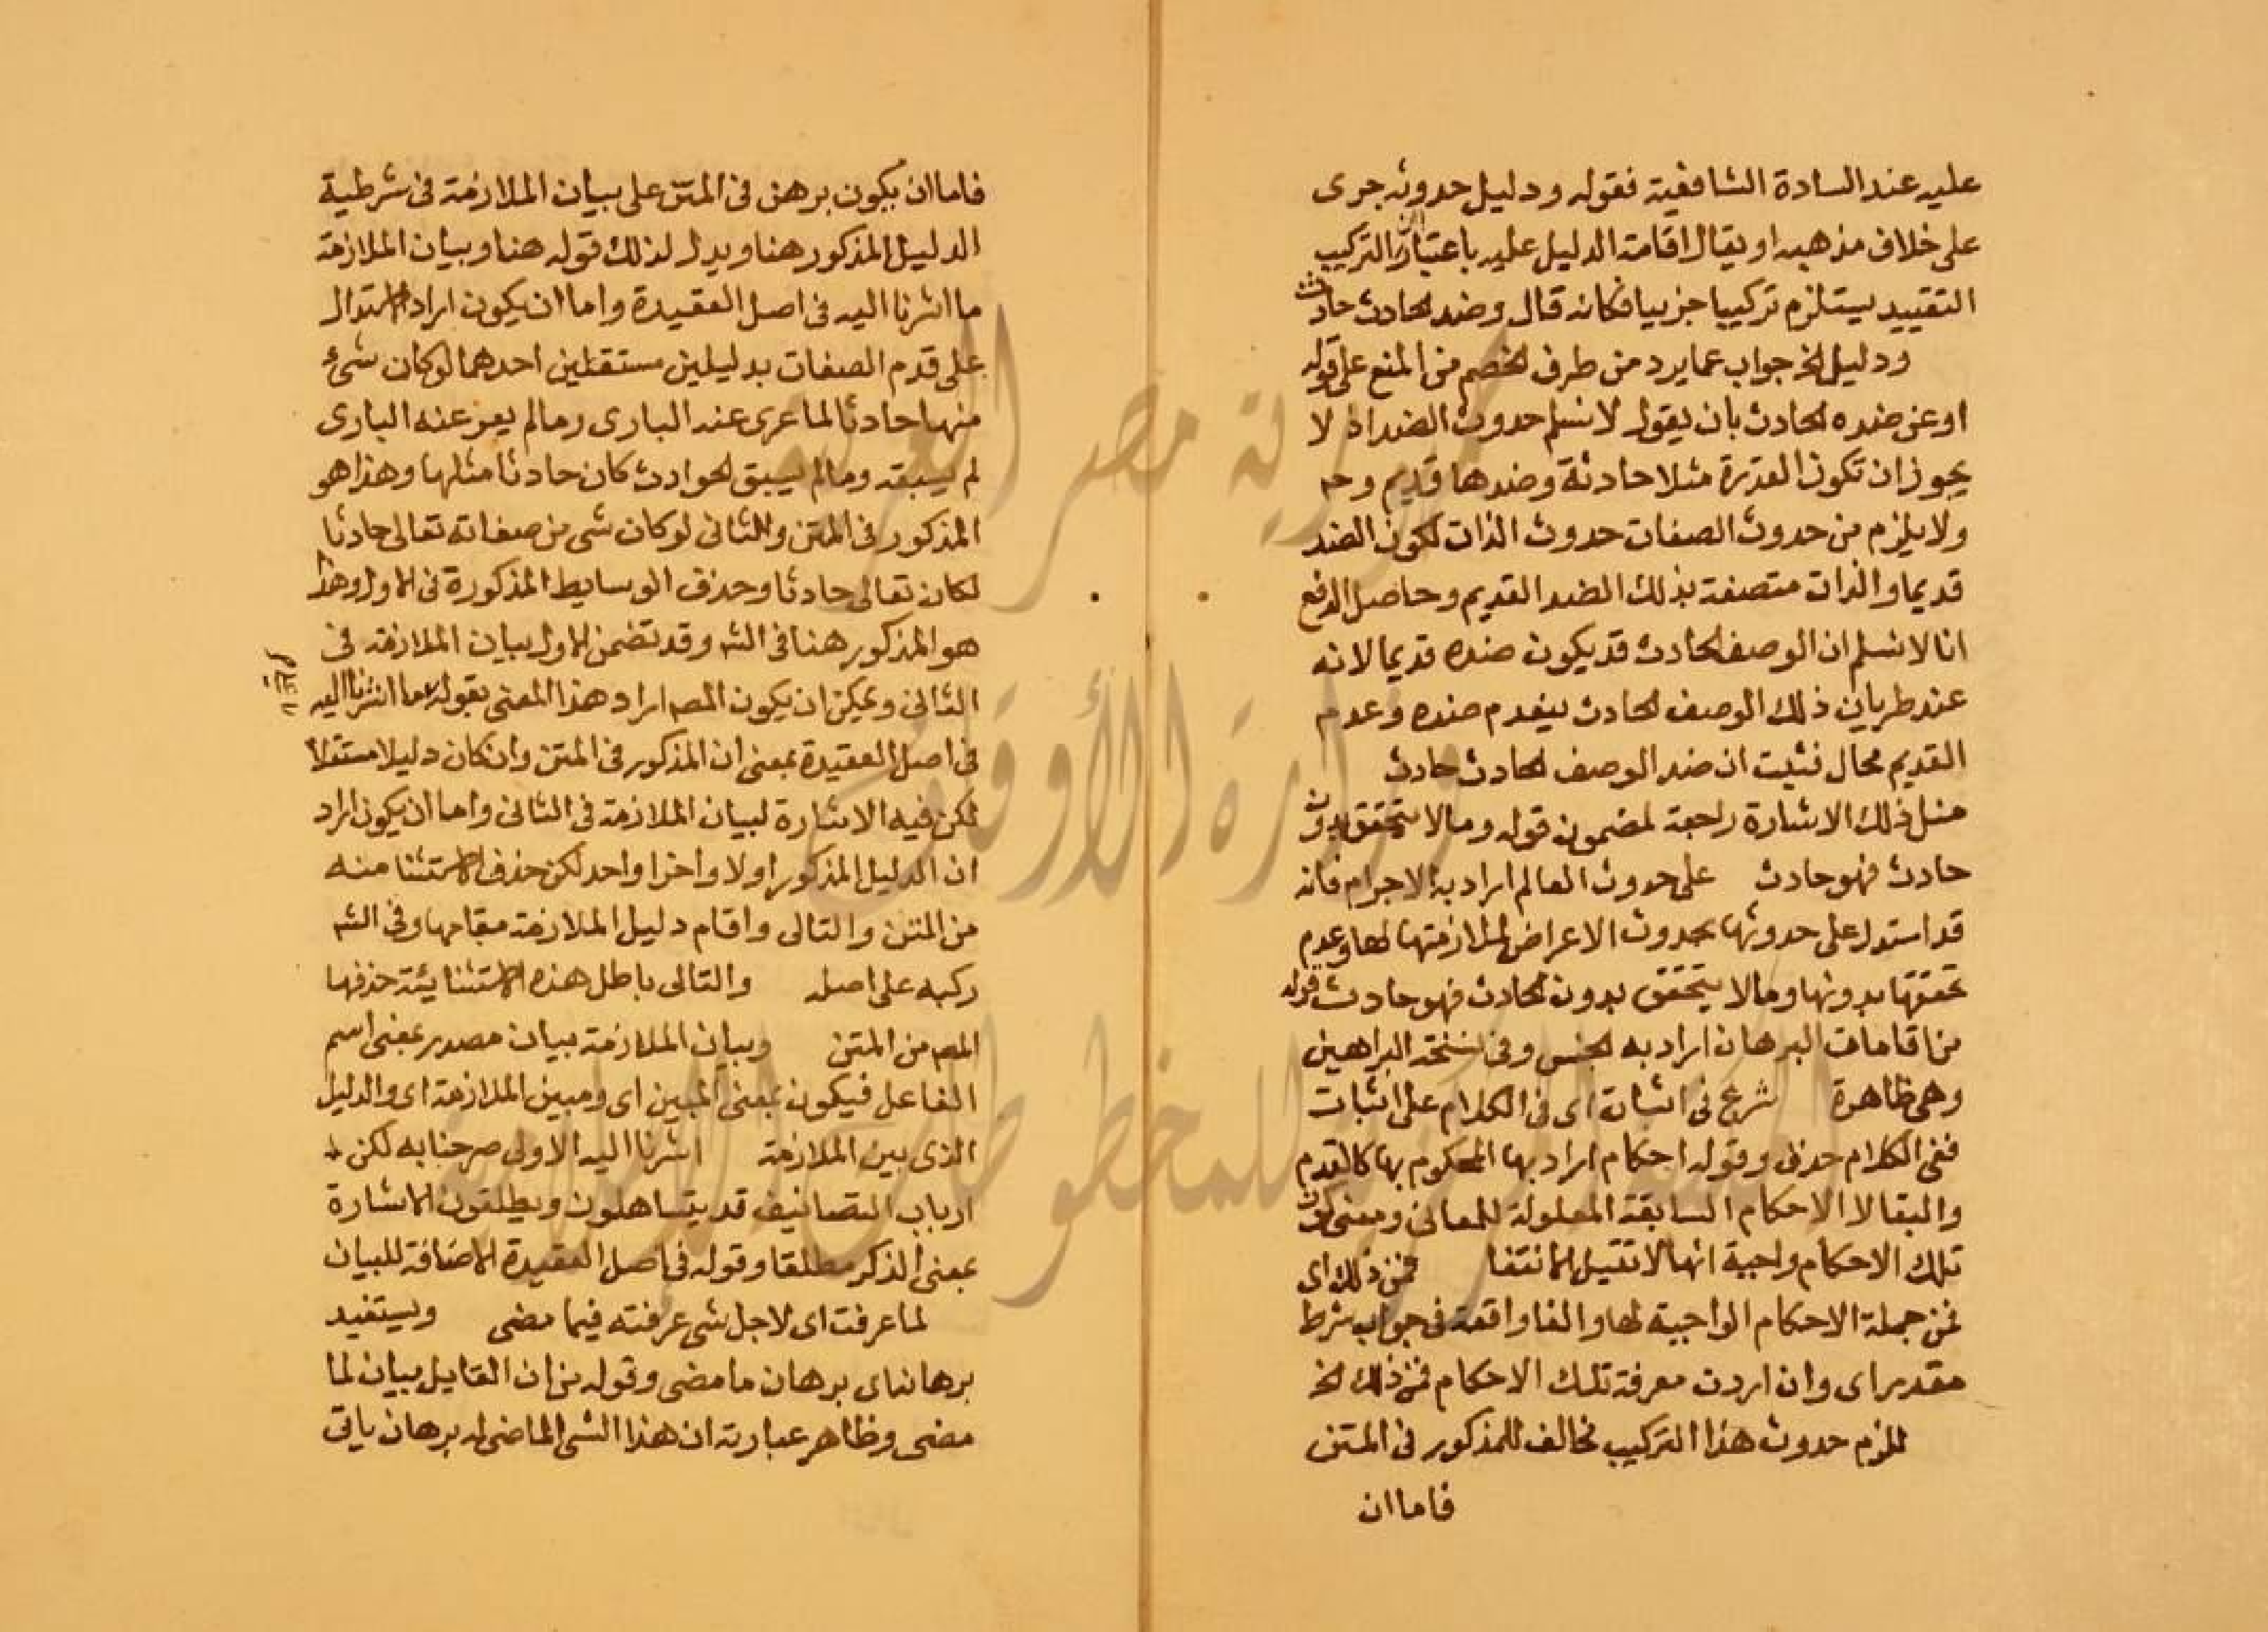 عليه عند السادة الشافعية فقوله ودليل حدوثه جرى
على خلاف مذهبه او يقال اقامة الدليل عليه باعتبار ان التركيب
التقييد يستلزم تركيبا خبريا فكانه قال وضد الحادث حادث
ودليل الخ جواب عما يرد من طرف الخصم من المنع على قوله
او عن ضده الحادث بان يقول لا نسلم حدوث الضد اذ لا
يجوز ان تكون القدرة مثلا حادثة وضدها قديم وح
ولا يلزم من حدوث الصفات حدوث الذات لكون الضد
قديما والذات متصفة بذلك الضد القديم وحاصل الدفع
انا لا نسلم ان الوصف الحادث قد يكون ضده قديما لانه
عند طريان ذلك الوصف الحادث ينعدم ضده وعدم
القديم محال فثبت ان ضد الوصف الحادث حادث
مثل ذلك الاشارة راجعة لمضمون قوله وما لا يتحقق بدون
حادث فهو حادث على حدوث العالم اراد به الاجرام فانه
قد استدل على حدوثها بحدوث الاعراض لملازمتها لها وعدم
تحققها بدونها وما لا يتحقق بدون الحادث فهو حادث قوله
من اقامات البرهان اراد به الجنس وفى نسخة البراهين
وهى ظاهرة شرع فى اثبات اى فى الكلام على اثبات
ففى الكلام حذف وقوله احكام اراد بها المحكوم بها كالقدم
والبقا لا الاحكام السابقة المعلولة للمعانى ومعنى كون
تلك الاحكام واجبة انها لا تقبل الانتفا فمن ذلك اى
فمن جملة الاحكام الواجبة لها والفا واقعة فى جواب شرط
مقدر اى وان اردت معرفة تلك الاحكام فمن ذلك الخ
للزم حدوث هذا التركيب مخالف للمذكور فى المتن
فاما ان
فاما ان يكون برهن فى المتن على بيان الملازمة فى شرطية
الدليل المذكور هنا ويدل لذلك قوله هنا وبيان الملازمة
ما اشرنا اليه فى اصل العقيدة واما ان يكون اراد الاستدال
على قدم الصفات بدليلين مستقلين احدهما لو كان شئ
منها حادثا لما عرى عنه البارى وما لم يعر عنه البارى
لم يسبقه وما لم يسبق الحوادث كان حادثا مثلها وهذا هو
المذكور فى المتن والثانى لو كان شى من صفاته تعالى حادثا
لكان تعالى حادثا وحذف الوسايط المذكورة فى الاول وهذا
هو المذكور هنا فى الشـ وقد تضمن الاول بيان الملازمة فى
الثانى ويمكن ان يكون المصـ اراد هذا المعنى بقوله ما اشرنا اليه
فى اصل العقيدة بمعنى ان المذكور فى المتن وان كان دليلا مستقلا
لكن فيه الاشارة لبيان الملازمة فى الثانى واما ان يكون اراد
ان الدليل المذكور اولا واخرا واحد لكن حذف الاستثنا منه
من المتن والتالى واقام دليل الملازمة مقامها وفى الشـ
ركبه على اصله والتالى باطل هذه الاستثنائية حذفها
المصـ من المتن وبيان الملازمة بيان مصدر بمعنى اسم
الفاعل فيكون بمعنى المبين اى ومبين الملازمة اى والدليل
الذى بين الملازمة اشرنا اليه الاولى صرحنا به لكن
ارباب التصانيف قد يتساهلون ويطلقون الاشارة
بمعنى الذكر مطلقا وقوله فى اصل العقيدة الاضافة للبيان
لما عرفت اى لاجل شى عرفته فيما مضى ويستفيد
برهانه اى برهان ما مضى وقوله من ان القايل بيان لما
مضى وظاهر عبارته ان هذا الشى الماضى له برهان ياتى